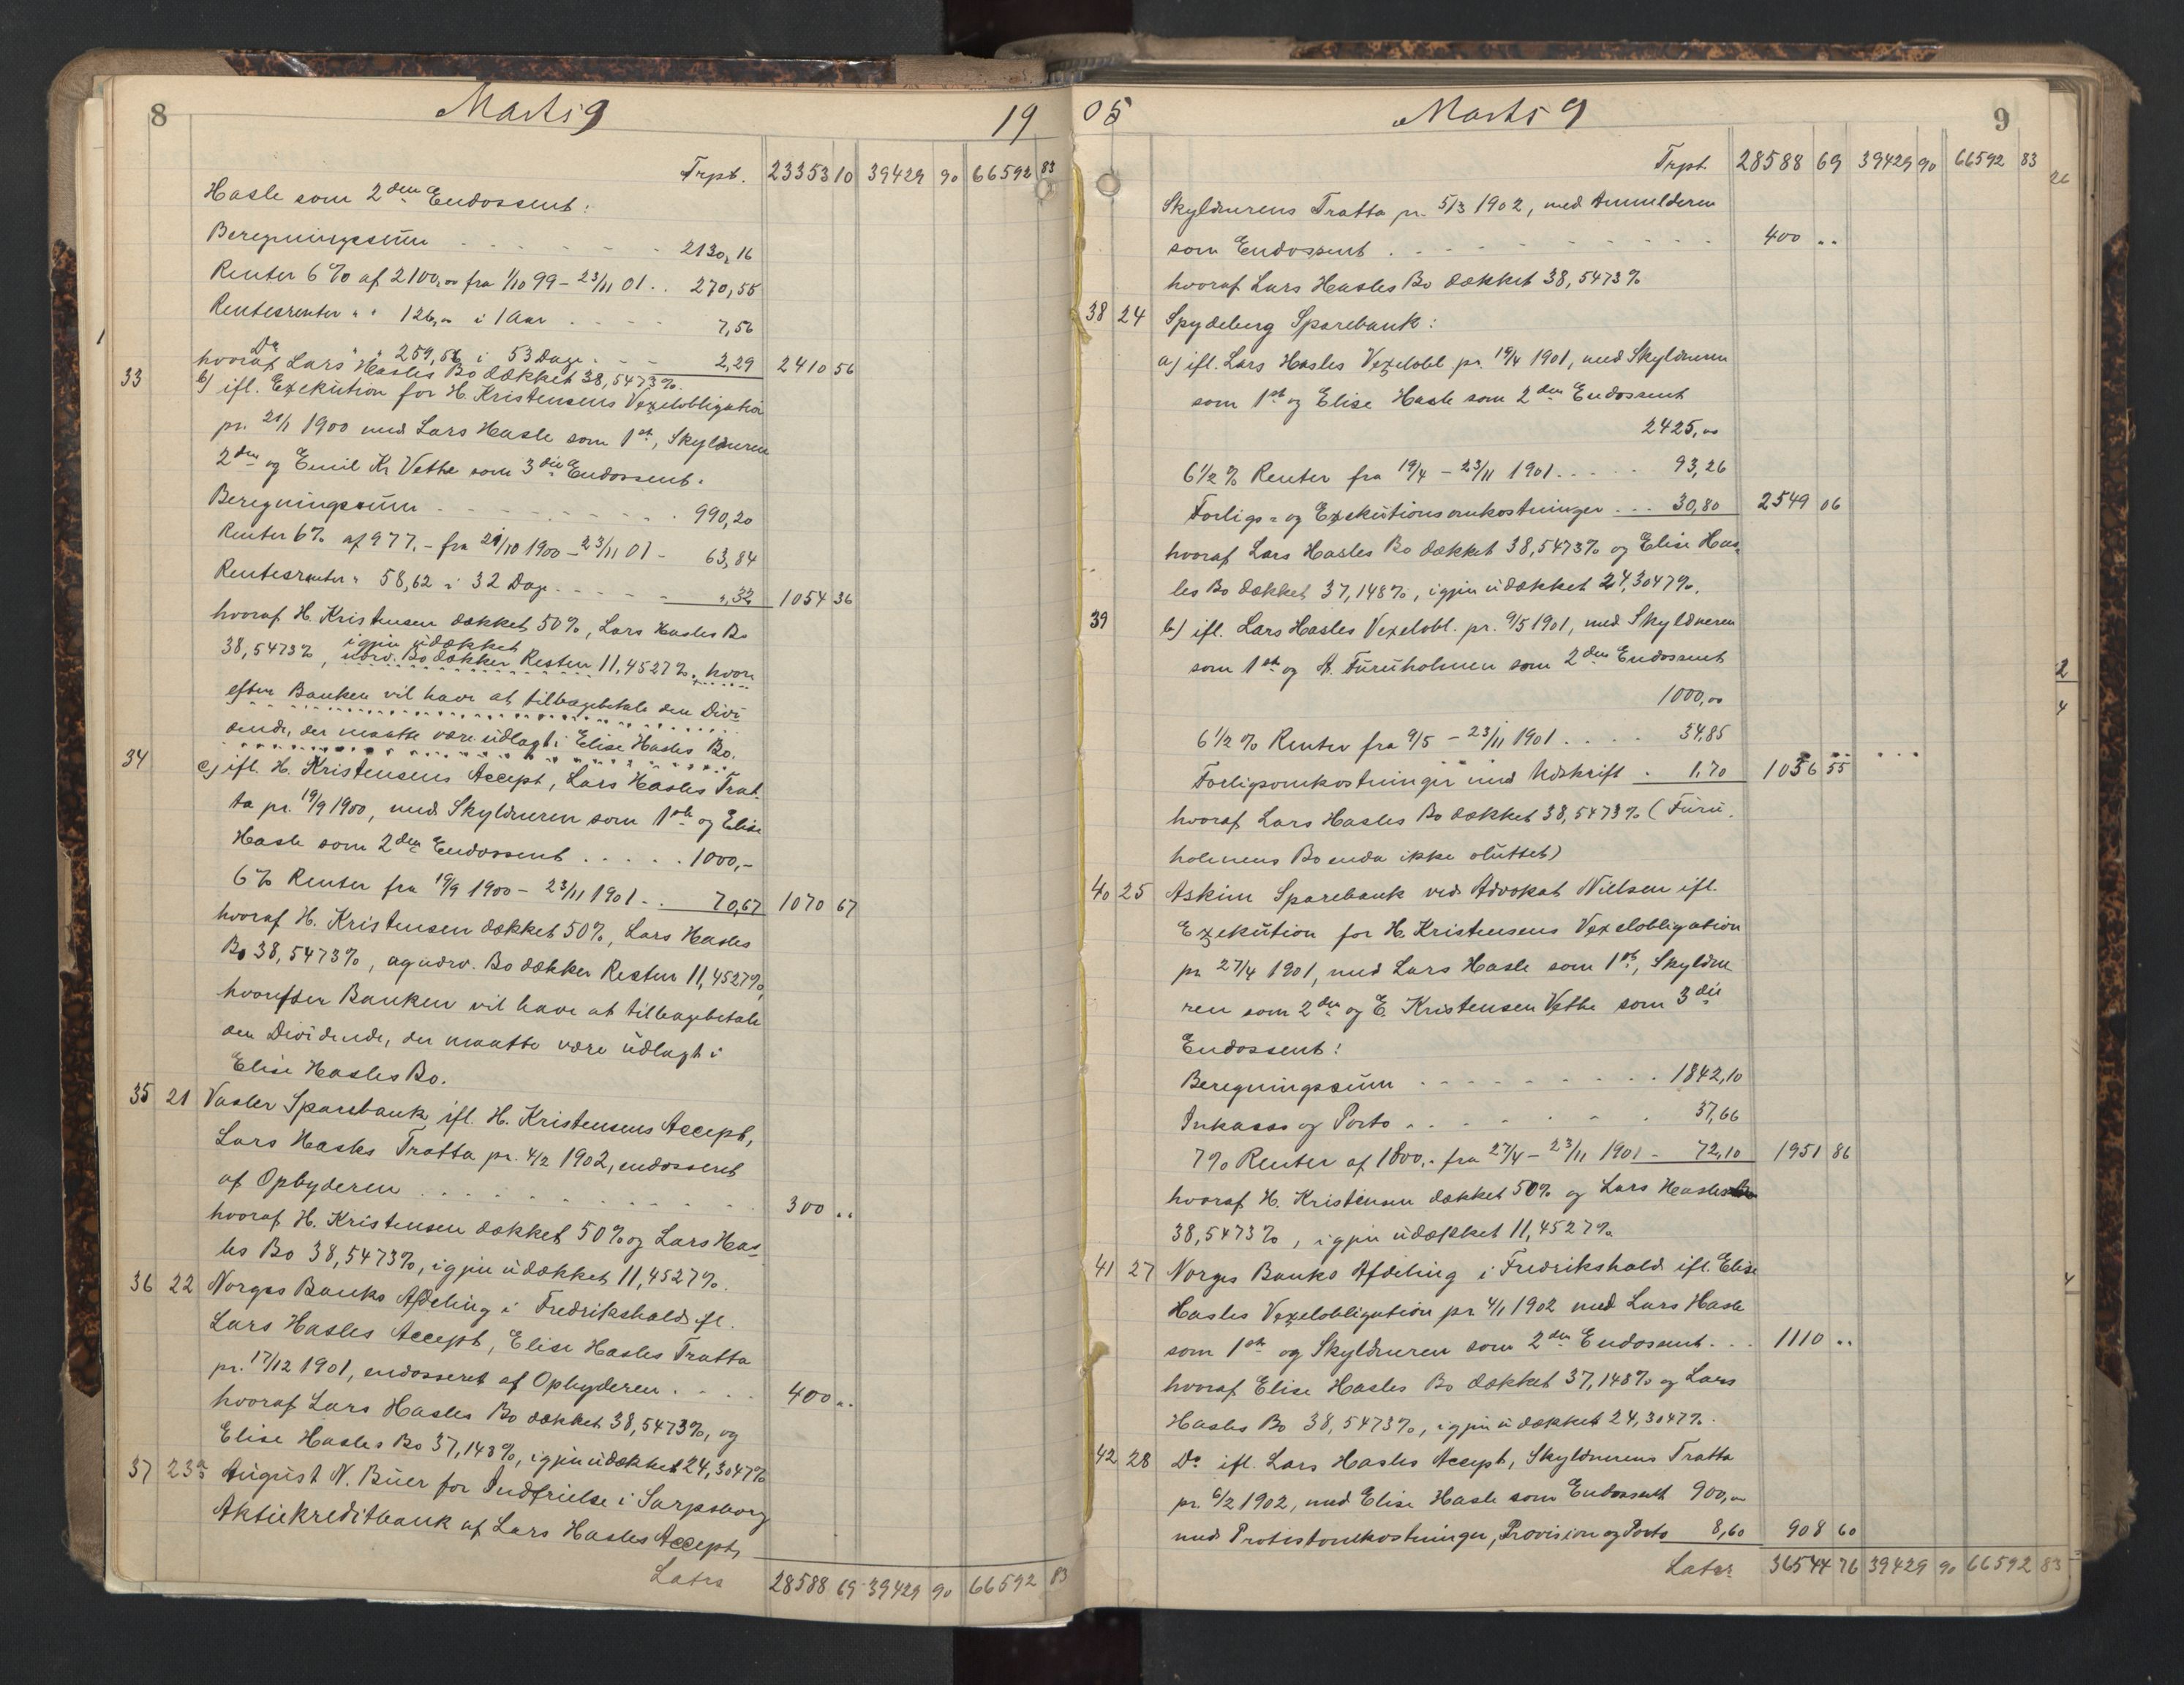 8 Marts 9 19
Trpt. 23353 10 39429 90 66592 83
Hasle som 2den Endossent:
Beregningssum . . . . . . 2130,16
Renter 6% af 2100,00 fra 1/10 99 – 23/11 01 . . 270,55
Rentesrenter " " 126,00 i 1 Aar . . . . 7,56
Do " " 259,56 i 53 Dage . . . 2,29 2410 56
hvoraf Lars Hasles Bo dækket 38,5473%.
33 b) ifl. Exekution for H. Kristensens Vexelobligation
pr. 21/1 1900 med Lars Hasle som 1st, Skyldneren
2den og Emil Kr Vethe som 3die Endossent.
Beregningssum . . . . . . . 990,20
Renter 6% af 977.– fra 21/10 1900 – 23/11 01 – 63,84
Rentesrenter " 58,62 i 32 Dage . . . . . ",32 1054 36
hvoraf H. Kristensen dækket 50%, Lars Hasles Bo
igjen udækket
38,5473%, nærv. Bo dækker Resten 11,4527%, hvor
efter Banken vil have at tilbagebetale den Divi
dende, der maatte være udlagt i Elise Hasles Bo.
34 c) ifl. H. Kristensens Accept, Lars Hasles Trat
ta pr. 19/9 1900, med Skyldneren som 1ste og Elise
Hasle som 2den Endossent . . . . . 1000,–
6% Renter fra 19/9 1900 – 23/11 1901 . . 70,67 1070 67
hvoraf H. Kristensen dækket 50%, Lars Hasles
Bo 38,5473%, og nærv. Bo dækker Resten 11,4527%,
hvorefter Banken vil have at tilbagebetale
den Dividende, der maatte være udlagt i
Elise Hasles Bo.
35 21 Vaaler Sparebank ifl. H. Kristensens Accept,
Lars Hasles Tratta pr. 4/2 1902, endosseret
af Opbyderen . . . . . . . . . . 300 ..
hvoraf H. Kristensen dækket 50% og Lars Has-
les Bo 38,5473%, igjen udækket 11,4527%.
36 22 Norges Banks Afdeling i Fredrikshald ifl.
Lars Hasles Accept, Elise Hasles Tratta
pr. 17/12 1901, endosseret af Opbyderen . . . . 400 ..
hvoraf Lars Hasles Bo dækket 38,5473%, og
Elise Hasles Bo 37,148%, igjen udækket 24,3047%
37 23a August N. Buer for Indfrielse i Sarpsborg
Aktiekreditbank af Lars Hasles Accept,
Latus 28588 69 39429 90 66592 83
05 Marts 9 9
Trpt. 28588 69 39429 90 66592 83
Skyldnerens Tratta pr. 5/3 1902, med Anmelderen
som Endossent . . . . . . . . . . 400 ..
hvoraf Lars Hasles Bo dækket 38,5473%
38 24 Spydeberg Sparebank:
a) ifl. Lars Hasles Vexelobl. pr. 19/4 1901, med Skyldneren
som 1st og Elise Hasle som 2den Endossent
2425,00
6 1/2 % Renter fra 19/4 – 23/11 1901 . . . . . 93,26
Forligs- og Exekutionsomkostninger . . . 30,80 2549 06
hvoraf Lars Hasles Bo dækket 38,5473% og Elise Has-
les Bo dækket 37,148%, igjen udækket 24,3047%.
39 b) ifl. Lars Hasles Vexelobl. pr. 9/5 1901, med Skyldneren
som 1st og A. Furuholmen som 2den Endossent
1000,00
6 1/2 % Renter fra 9/5 – 23/11 1901 . . . . 54,85
Forligsomkostninger med Udskrift . 1,70 1056 55
hvoraf Lars Hasles Bo dækket 38,5473% (Furu-
holmens Bo enda ikke sluttet)
40 25 Askim Sparebank ved Advokat Nielsen ifl.
Exekution for H. Kristensens Vexelobligation
pr. 27/4 1901, med Lars Hasle som 1st, Skyldne
ren som 2den og E. Kristensen Vethe som 3die
Endossent:
Beregningssum . . . . . . . . . 1842,10
Inkasso og Porto . . . . . . 37,66
7% Renter af 1800,– fra 27/4 – 23/11 1901 – 72,10 1951 86
hvoraf H. Kristensen dækket 50% og Lars Hasles Bo
38,5473%, igjen udækket 11,4527%
41 27 Norges Banks Afdeling i Fredrikshald ifl. Elise
Hasles Vexelobligation pr. 4/1 1902 med Lars Hasle
som 1ste og Skyldneren som 2den Endossent . . . 1110 ..
hvoraf Elise Hasles Bo dækket 37,148% og Lars
Hasles Bo 38,5473%, igjen udækket 24,3047%.
42 28 Do ifl. Lars Hasles Accept, Skyldnerens Tratta
pr. 6/2 1902, med Elise Hasle som Endossent 900,00
med Protestomkostninger, Provision og Porto 8,60 908 60
Latus 36544 76 39429 90 66592 83